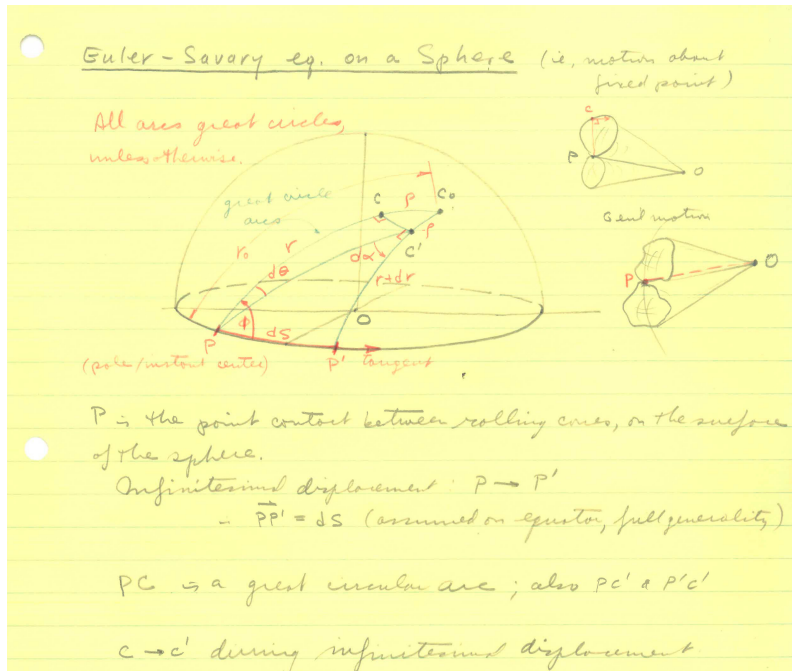 Euler-Savary eq. on a Sphere (ie, motion about
fixed point)
All arcs great circles,
unless otherwise.
great circle
arcs
C
P
O
Gen'l motion
P
O
r₀
r
ρ
C
C₀
C'
ρ
dα
dθ
r+dr
φ
dS
O
P
P'
tangent
(pole/instant center)
P is the point contact between rolling cones, on the surface
of the sphere.
Infinitesimal displacement: P → P'
- PP' = dS (assumed on equator, full generality)
PC is a great circular arc; also PC' & P'C'
C → C' during infinitesimal displacement